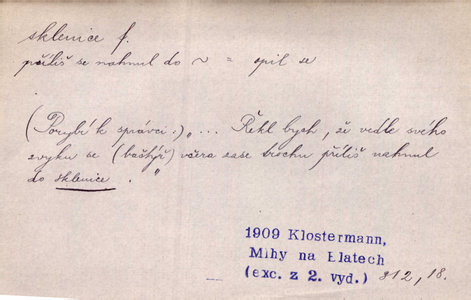 sklenice f.
příliš se nahnul do ~ = opil se
(Porybí k správci:) „... Řekl bych, že vedle svého
zvyku se (baštýř) včera zase trochu příliš nahnul
do sklenice . "
1909 Klostermann,
Mlhy na Blatech
(exc. z 2. vyd.) 312, 18.